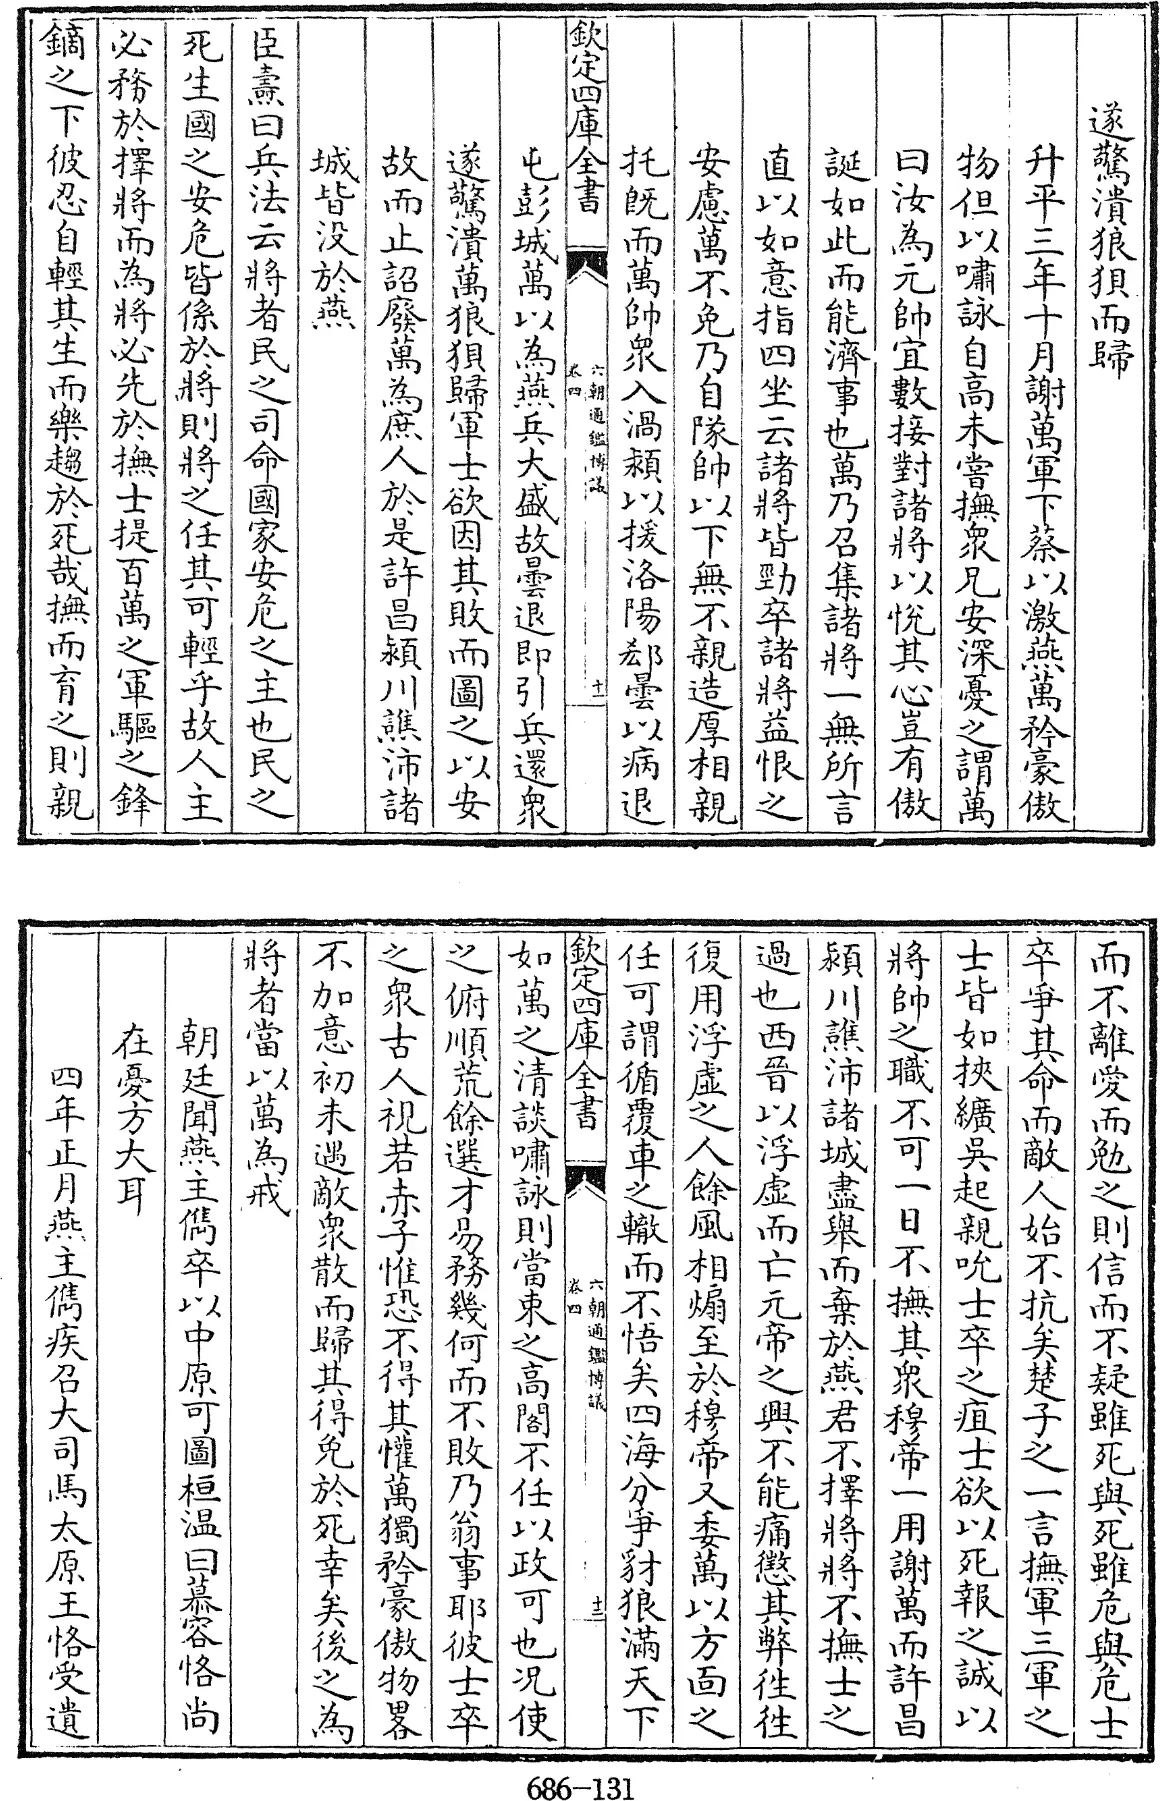 遂驚潰狼狽而歸
升平三年十月謝萬軍下蔡以激燕萬矜豪傲
物但以嘯詠自高未嘗撫衆兄安深憂之謂萬
曰汝為元帥宜數接對諸將以悅其心豈有傲
誕如此而能濟事也萬乃召集諸將一無所言
直以如意指四坐云諸將皆勁卒諸將益恨之
安慮萬不免乃自隊帥以下無不親造厚相親
托既而萬帥衆入渦潁以援洛陽郗曇以病退
欽定四庫全書
六朝通鑑博議
卷四
十一
屯彭城萬以為燕兵大盛故曇退即引兵還衆
遂驚潰萬狼狽歸軍士欲因其敗而圖之以安
故而止詔廢萬為庶人於是許昌潁川譙沛諸
城皆没於燕
臣燾曰兵法云將者民之司命國家安危之主也民之
死生國之安危皆係於將則將之任其可輕乎故人主
必務於擇將而為將必先於撫士提百萬之軍驅之鋒
鏑之下彼忍自輕其生而樂趨於死哉撫而育之則親
而不離愛而勉之則信而不疑雖死與死雖危與危士
卒爭其命而敵人始不抗矣楚子之一言撫軍三軍之
士皆如挾纊吳起親吮士卒之疽士欲以死報之誠以
將帥之職不可一日不撫其衆穆帝一用謝萬而許昌
潁川譙沛諸城盡舉而棄於燕君不擇將將不撫士之
過也西晉以浮虛而亡元帝之興不能痛懲其弊徃徃
復用浮虛之人餘風相煽至於穆帝又委萬以方面之
任可謂循覆車之轍而不悟矣四海分爭豺狼滿天下
欽定四庫全書
六朝通鑑博議
卷四
十二
如萬之清談嘯詠則當束之高閣不任以政可也况使
之俯順荒餘選才易務幾何而不敗乃翁事耶彼士卒
之衆古人視若赤子惟恐不得其懽萬獨矜豪傲物畧
不加意初未遇敵衆散而歸其得免於死幸矣後之為
將者當以萬為戒
朝廷聞燕主儁卒以中原可圖桓温曰慕容恪尚
在憂方大耳
四年正月燕主儁疾召大司馬太原王恪受遺
686-131